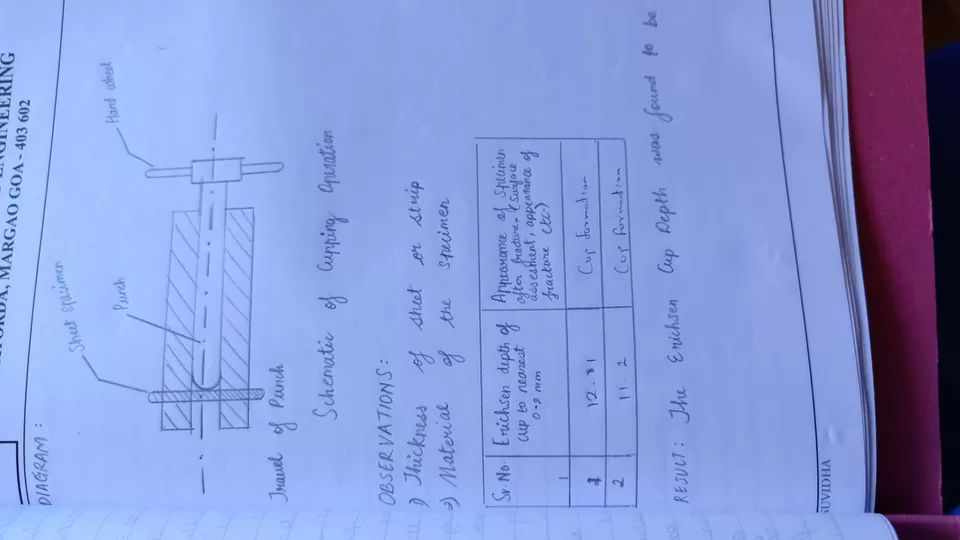 ENGINEERING
MARGAO GOA - 403 602
DIAGRAM :
Sheet Specimen
Punch
Hand wheel
Travel of Punch
Schematic of Cupping Operation
OBSERVATIONS:
1) Thickness of sheet or strip
2) Material of the specimen
Sr. No. Erichsen depth of cup to nearest 0.2 mm Appearance of specimen after fracture, (Surface assesment, appearance of fracture etc.)
1
12.81 Cup formation
2 11.2 Cup formation
RESULT: The Erichsen Cup Depth was found to be
SUVIDHA